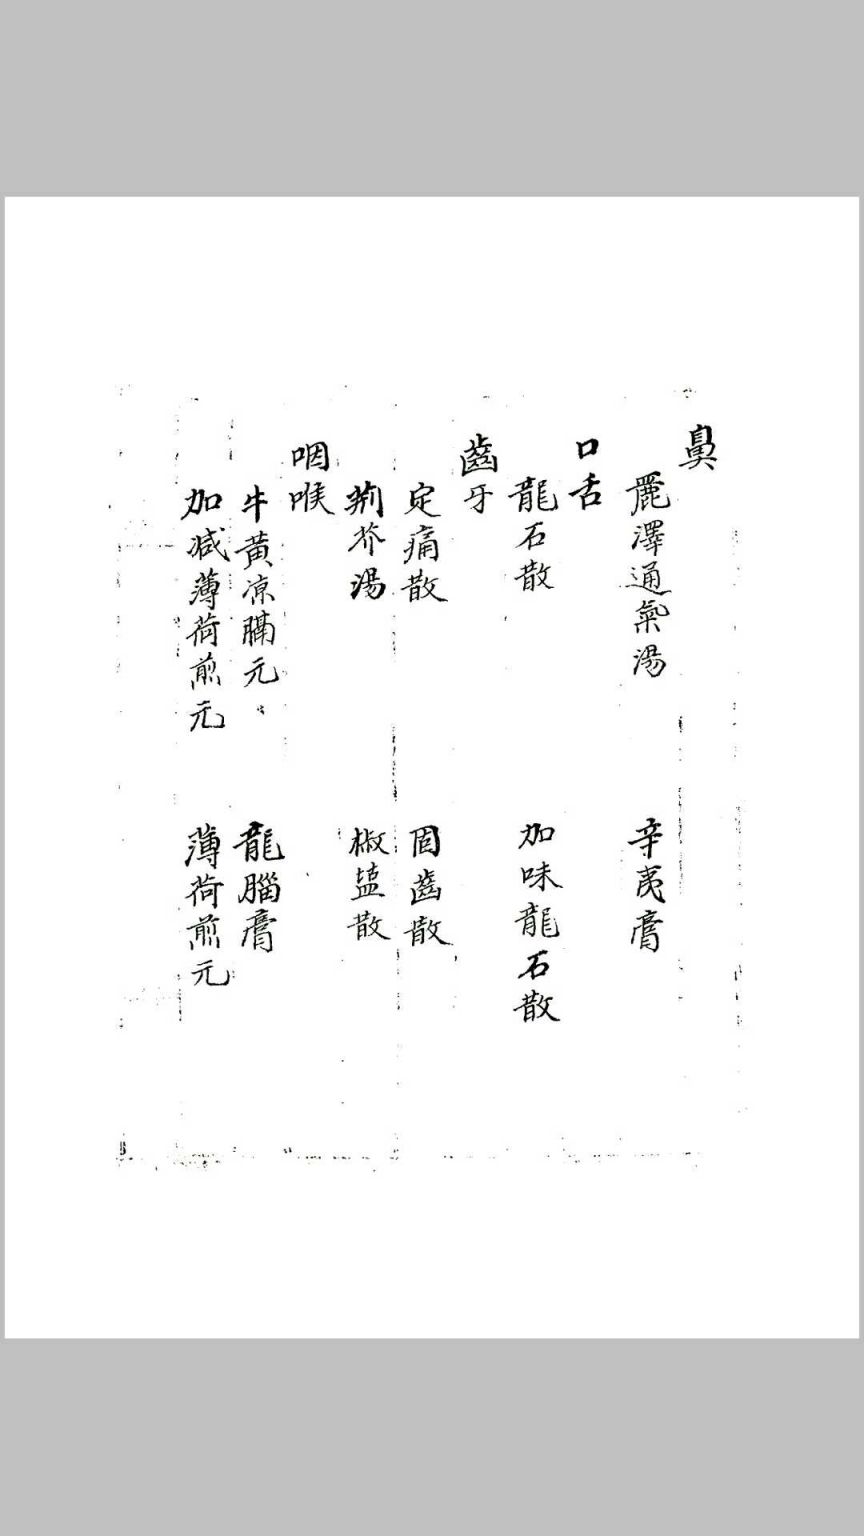 鼻
麗澤通氣湯　辛夷膏
口舌
龍石散　加味龍石散
齒牙
定痛散　固齒散
荊芥湯　椒塩散
咽喉
牛黃凉膈元　龍腦膏
加减薄荷煎元　薄荷煎元